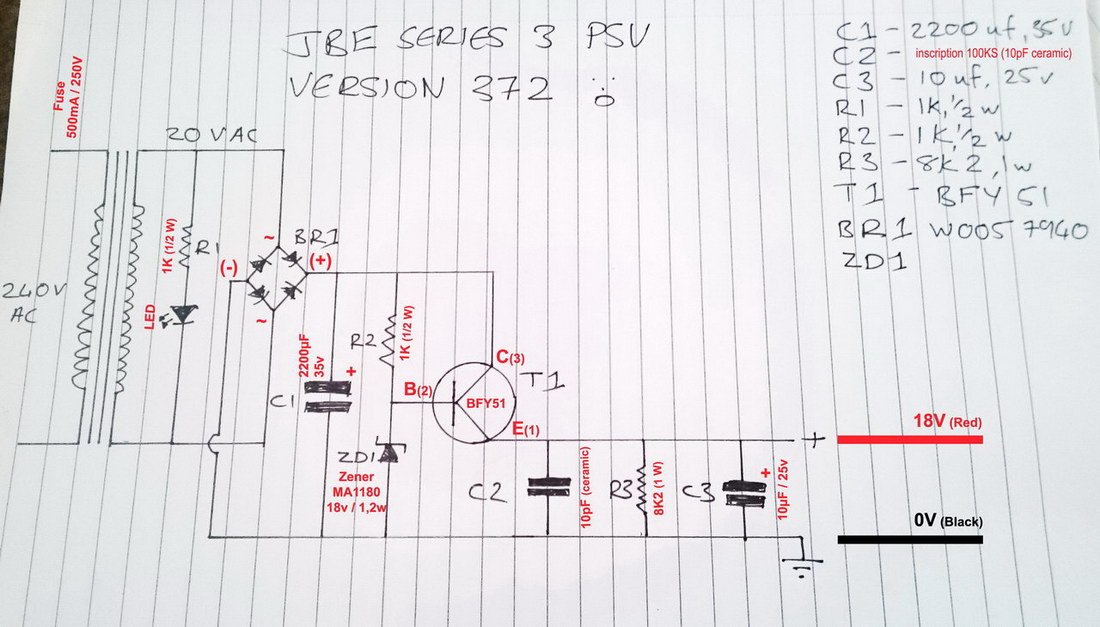 JBE SERIES 3 PSU
VERSION 372
C1 - 2200uf, 35V
C2 - inscription 100KS (10pF ceramic)
C3 - 10uf, 25v
R1 - 1K, 1/2 w
R2 - 1K, 1/2 w
R3 - 8K2, 1w
T1 - BFY51
BR1 W005 7940
ZD1
Fuse
500mA / 250V
20 VAC
240V
AC
1K (1/2 W)
R1
LED
~
BR1
(-)
(+)
~
2200µF
35v
+
C1
R2
1K (1/2 W)
B(2)
C(3)
T1
BFY51
E(1)
ZD1
Zener
MA1180
18v / 1,2w
C2
10pF (ceramic)
R3
8K2 (1 W)
C3
+
10µF / 25v
+
18V (Red)
0V (Black)